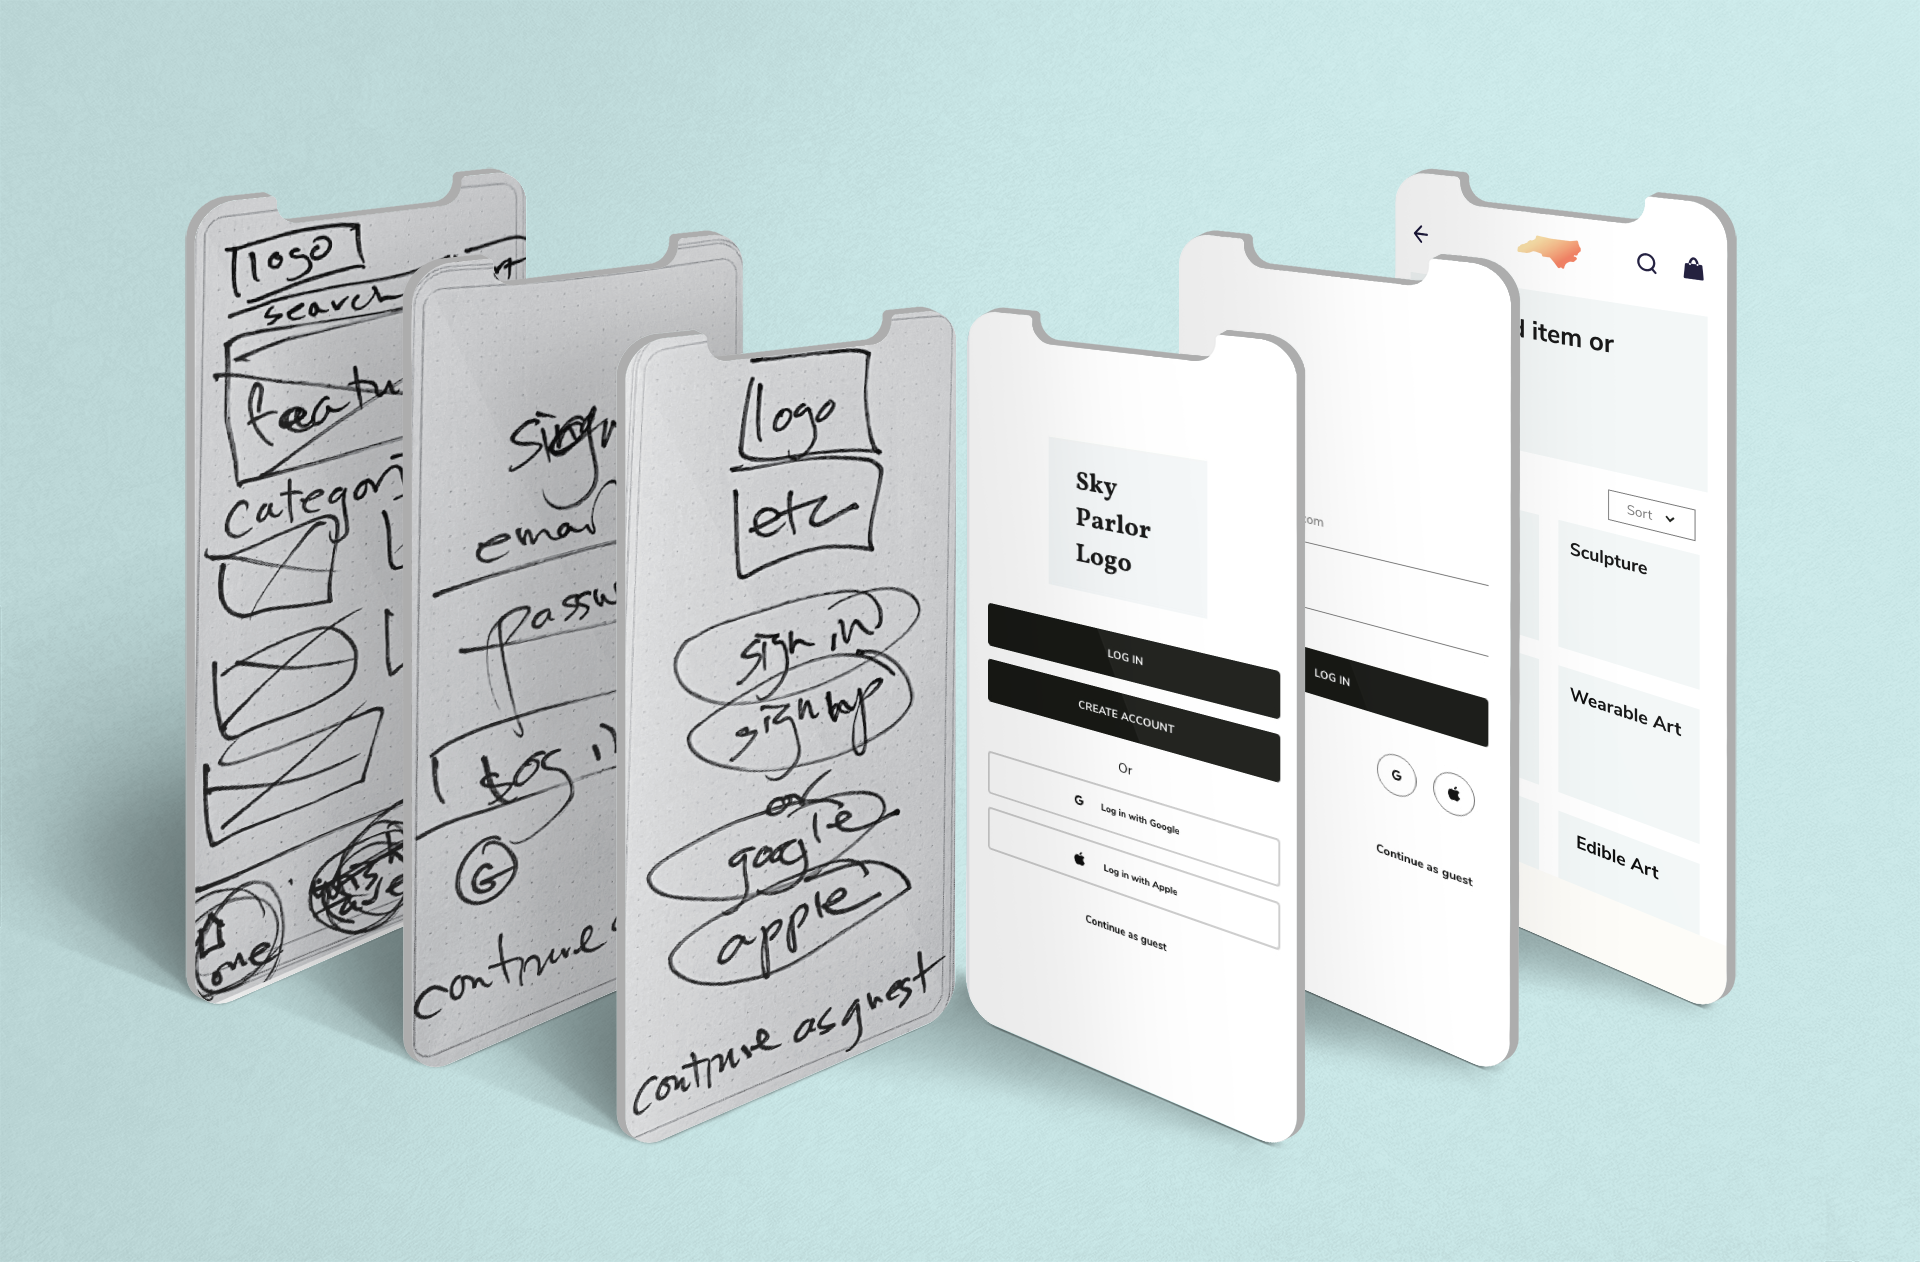 logo
search
featu
categor
one
sign
email
passw
log in
G
continue
logo
etc
sign in
sign up
or
google
apple
continue as guest
Sky
Parlor
Logo
LOG IN
CREATE ACCOUNT
Or
G Log in with Google
Log in with Apple
Continue as guest
.com
LOG IN
G
Continue as guest
item or
Sort
Sculpture
Wearable Art
Edible Art